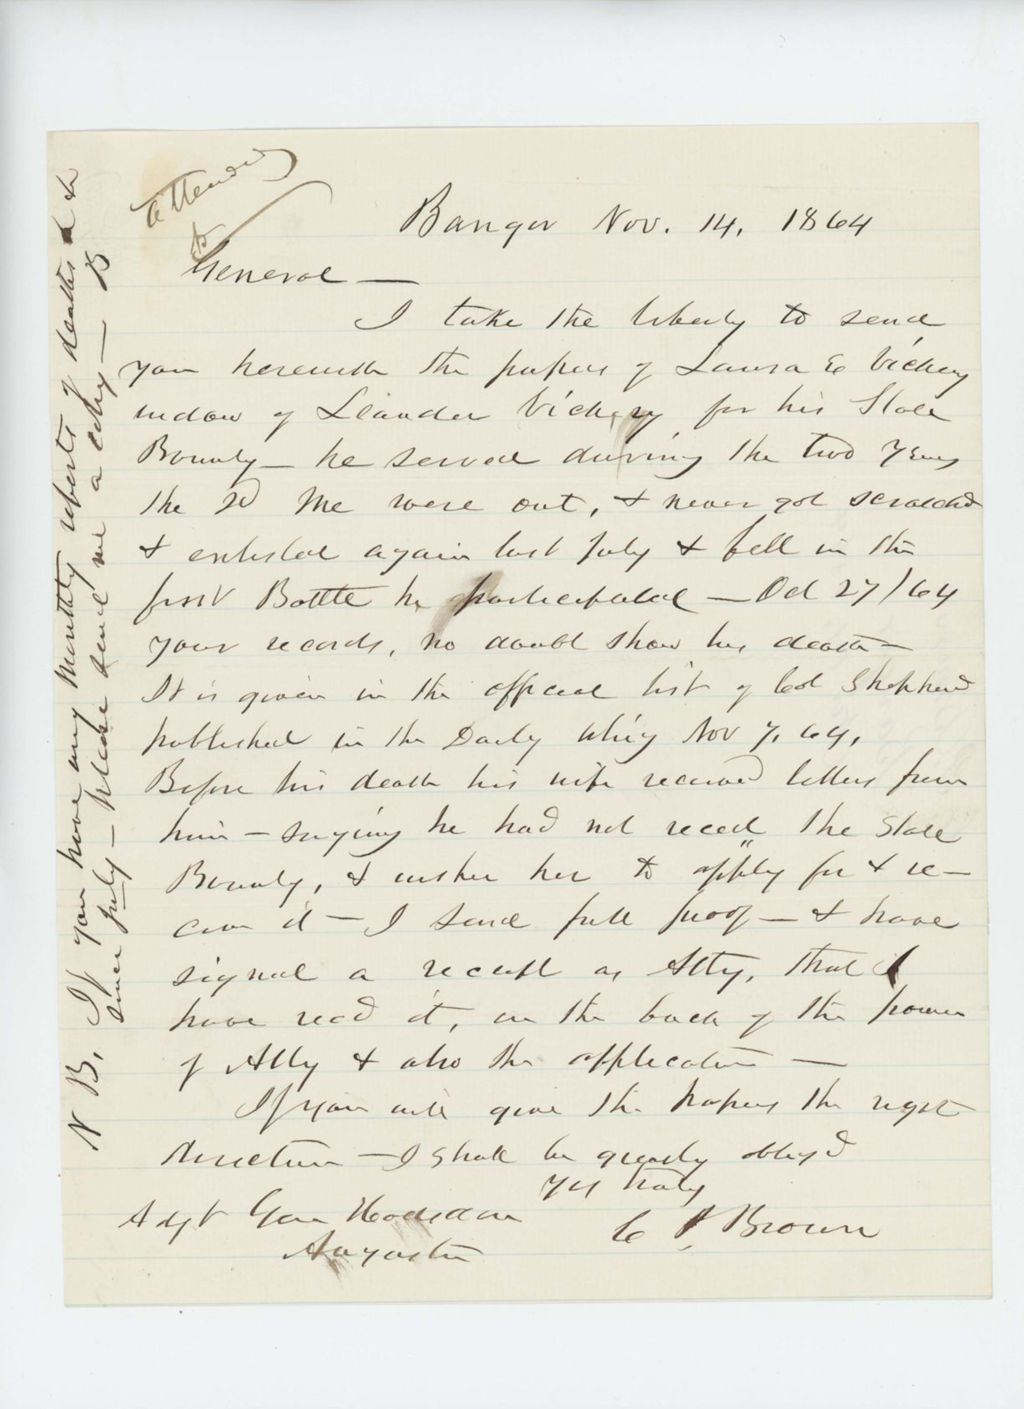 Attended
Bangor Nov. 14, 1864
General —
I take the liberty to send
you herewith the papers of Laura E Vickery
widow of Leander Vickery for his State
Bounty — he served during the two years
the 2d Me were out, & never got scratched
& enlisted again last July & fell in the
first Battle he participated — Oct 27/64
Your records, no doubt show his death —
It is given in the official list of Col Shepherd
published in the Daily Whig Nov 7, 64,
Before his death his wife received letters from
him — saying he had not recd the State
Bounty, & wishes her to apply for & re-
ceive it — I send full proof — & have
signed a receipt as Atty, that I
have recd it, on the back of the power
of Atty & also the application —
If you will give the papers the right
direction — I shall be greatly oblig'd
Yrs truly
C P Brown
Adjt Gen Hodsdon
Augusta
N B, If you have any monthly reports of deaths &c
since July — please send me a copy — B